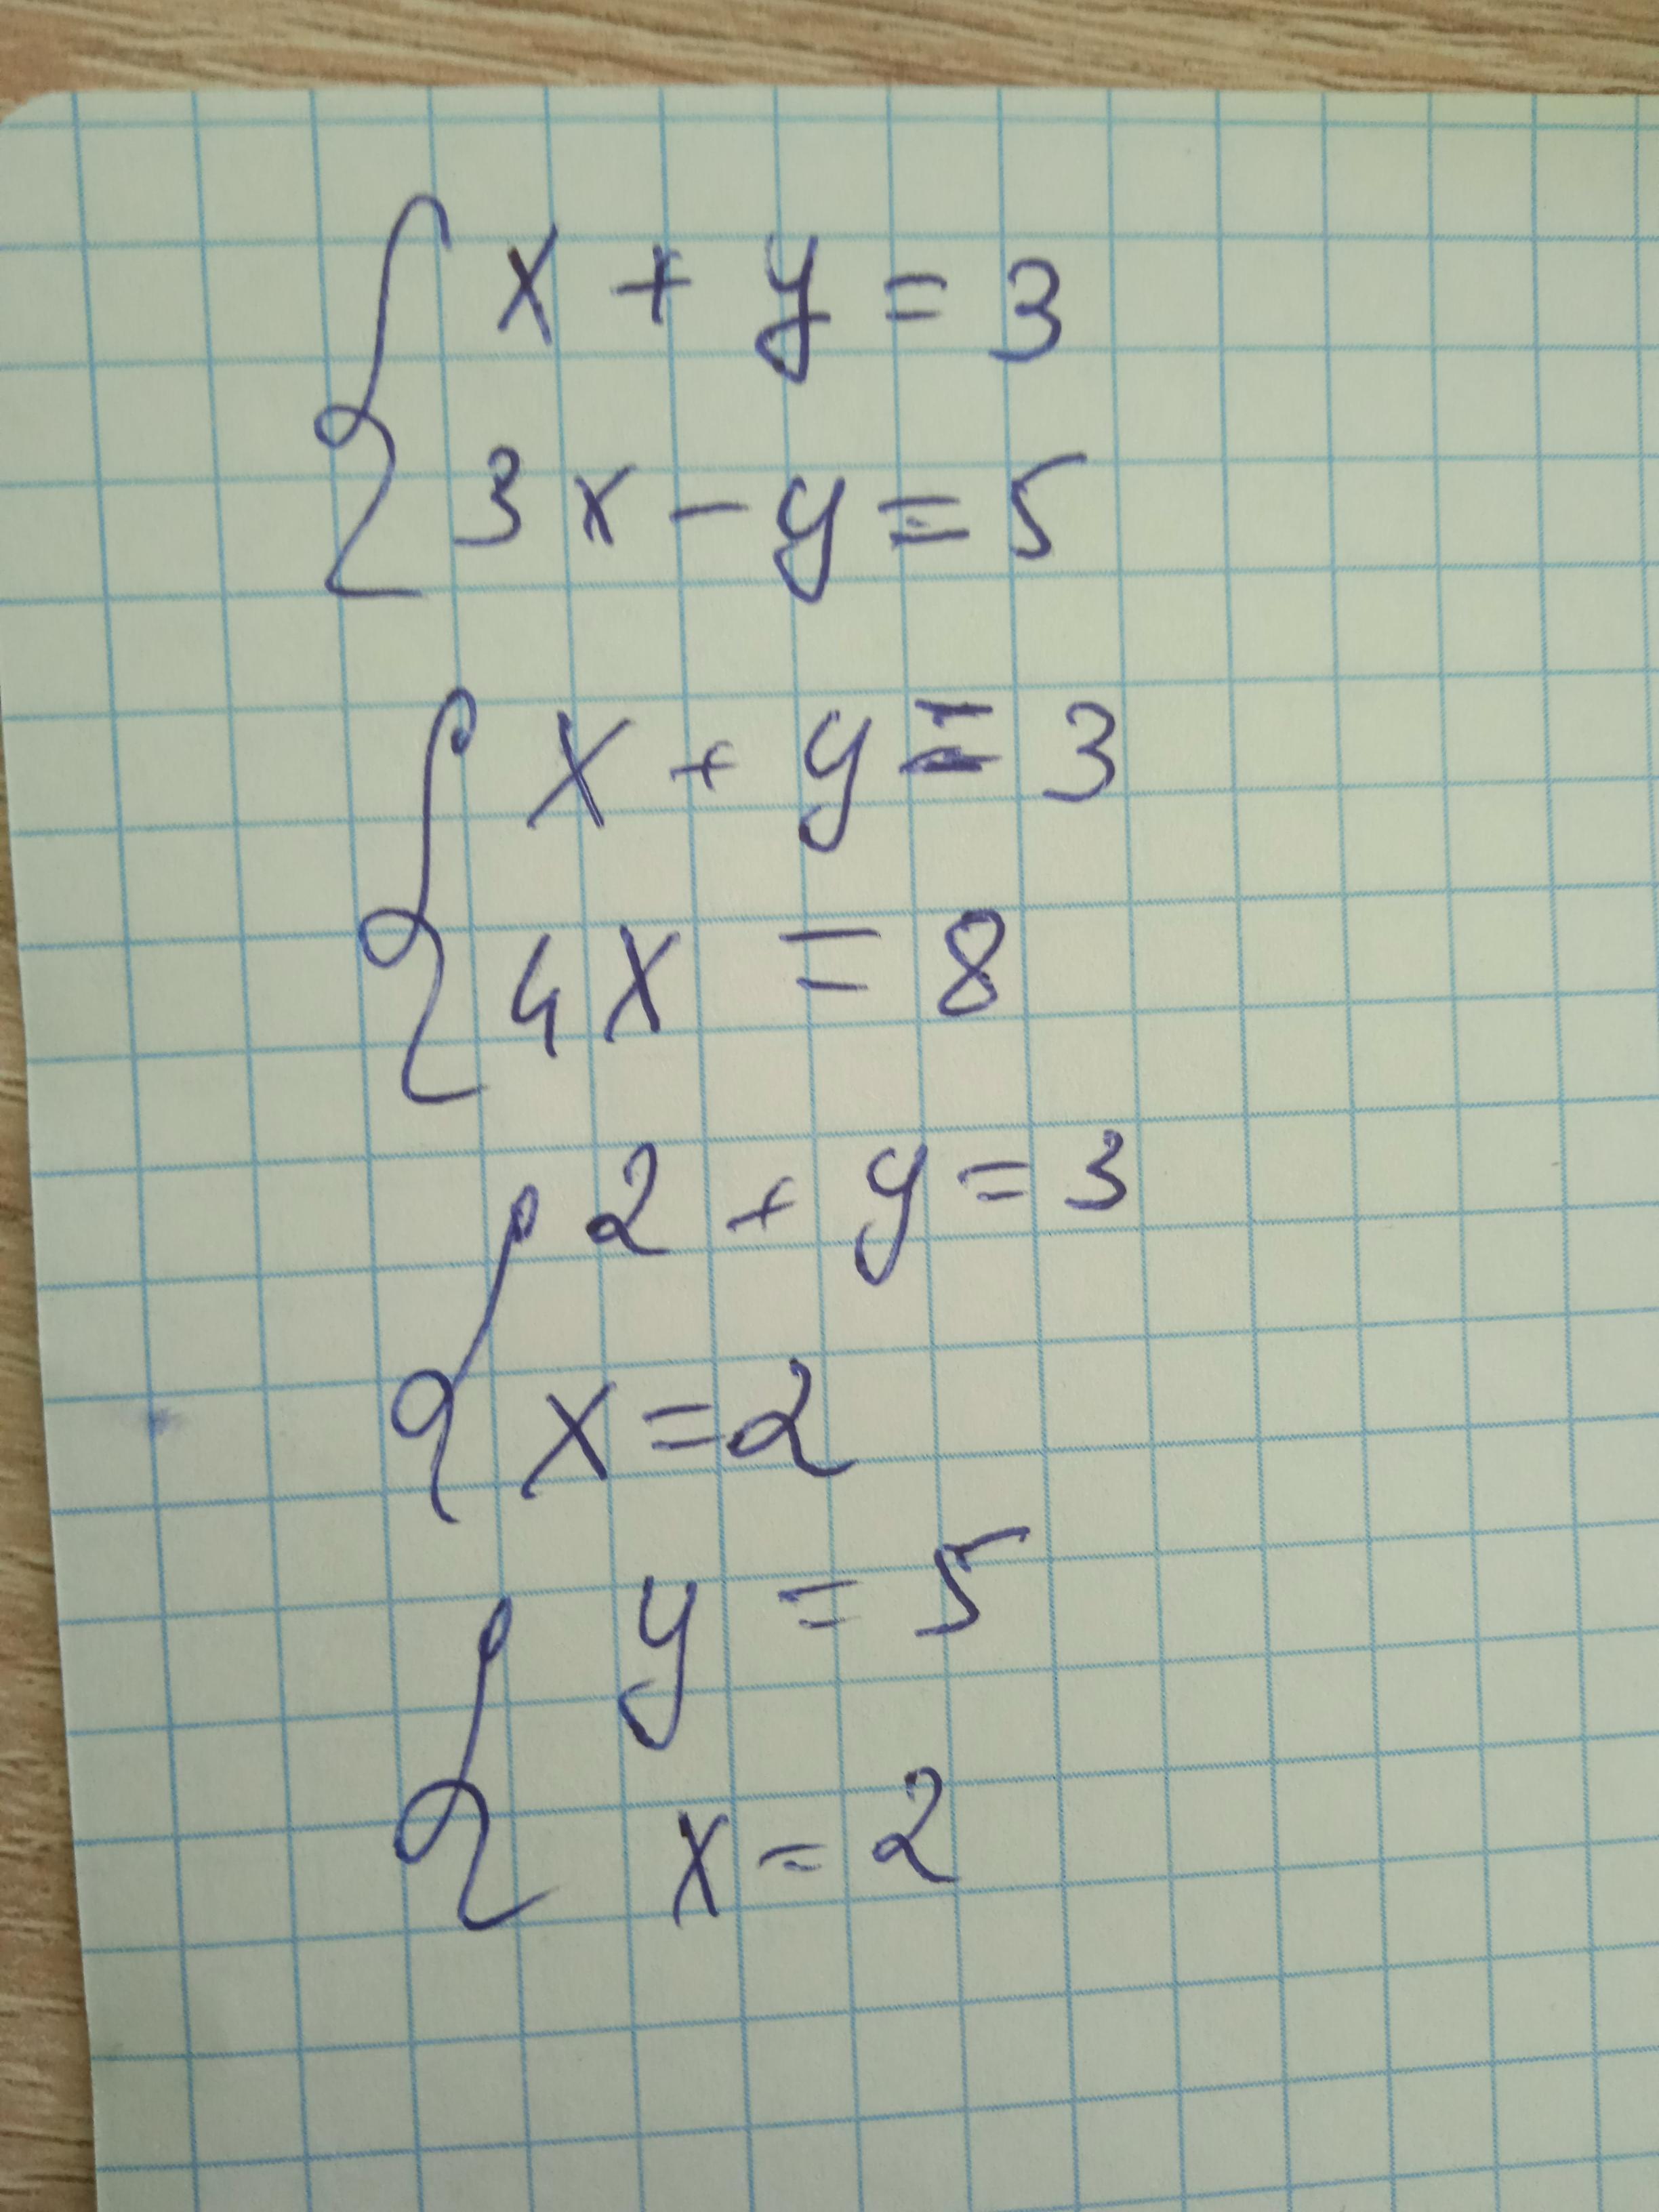 x + y = 3
3x - y = 5
x + y = 3
4x = 8
2 + y = 3
x = 2
y = 5
x = 2